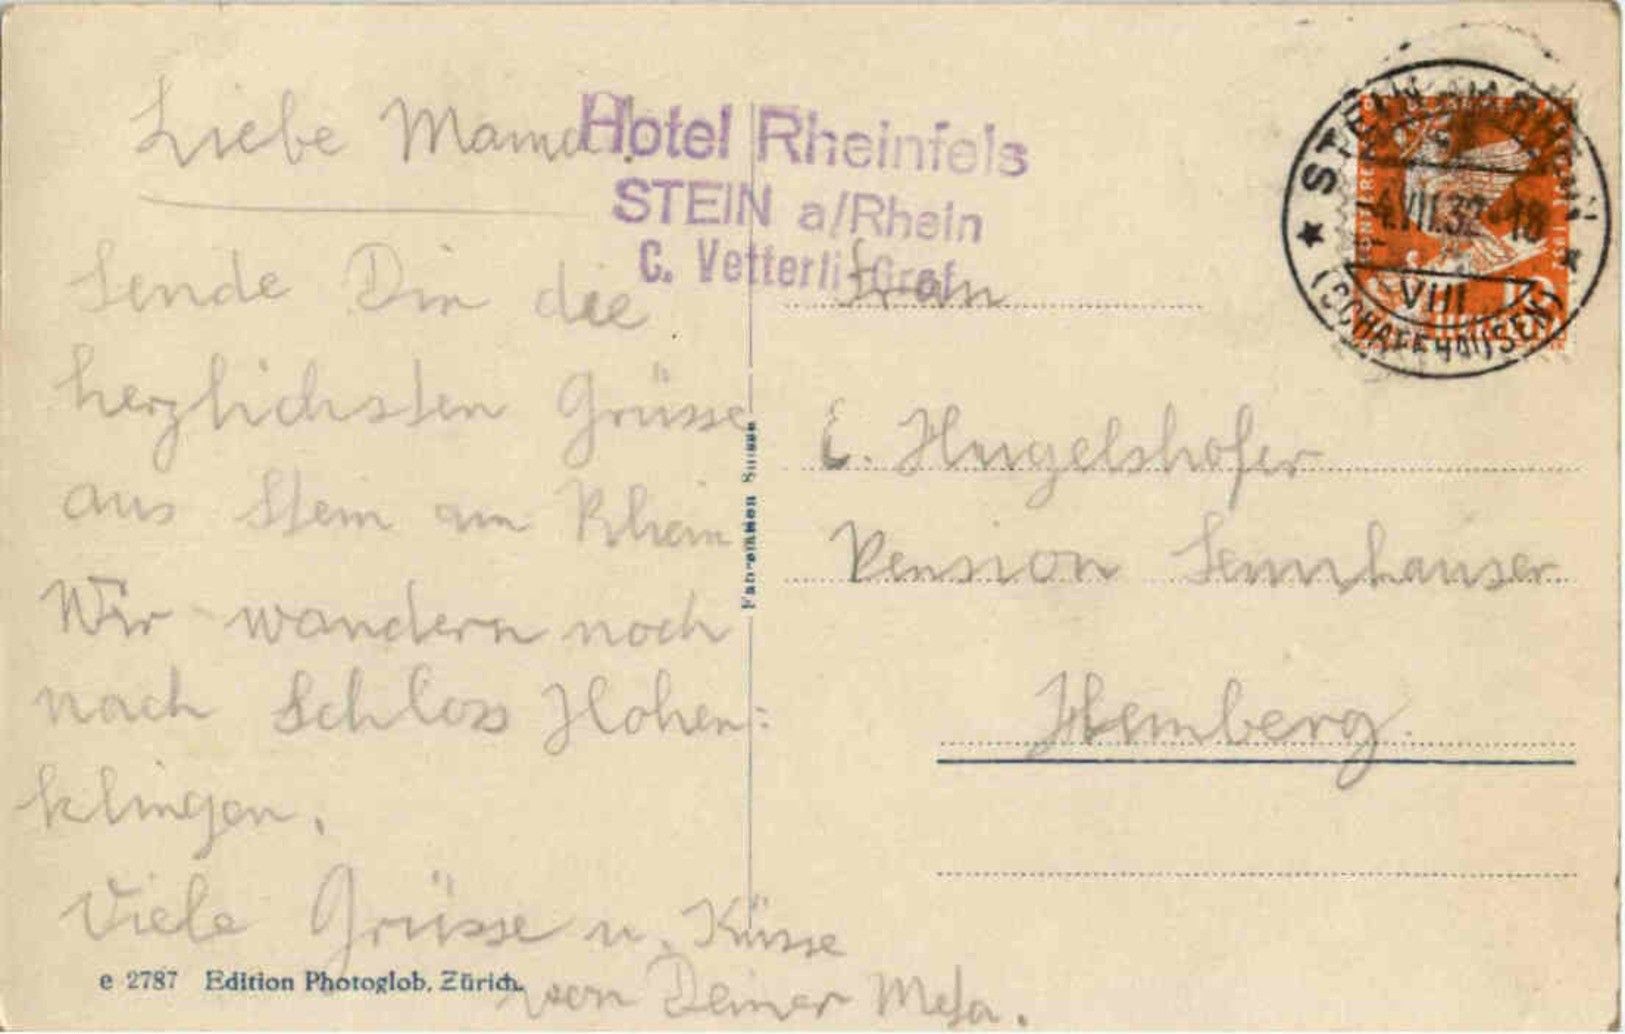 Liebe Mama.
Sende Dir die
herzlichsten Grüsse
aus Stein am Rhein
Wir wandern noch
nach Schloss Hohen:
klingen.
Viele Grüsse u. Küsse
von Deiner
e 2787 Edition Photoglob, Zürich.
Hotel Rheinfels
STEIN a/Rhein
C. Vetterli-Graf
Frau
E. Hugelshofer
Pension Sennhauser
Hemberg.
STEIN AM RHEIN
VII.32-18
VIII
(SCHAFFHAUSEN)